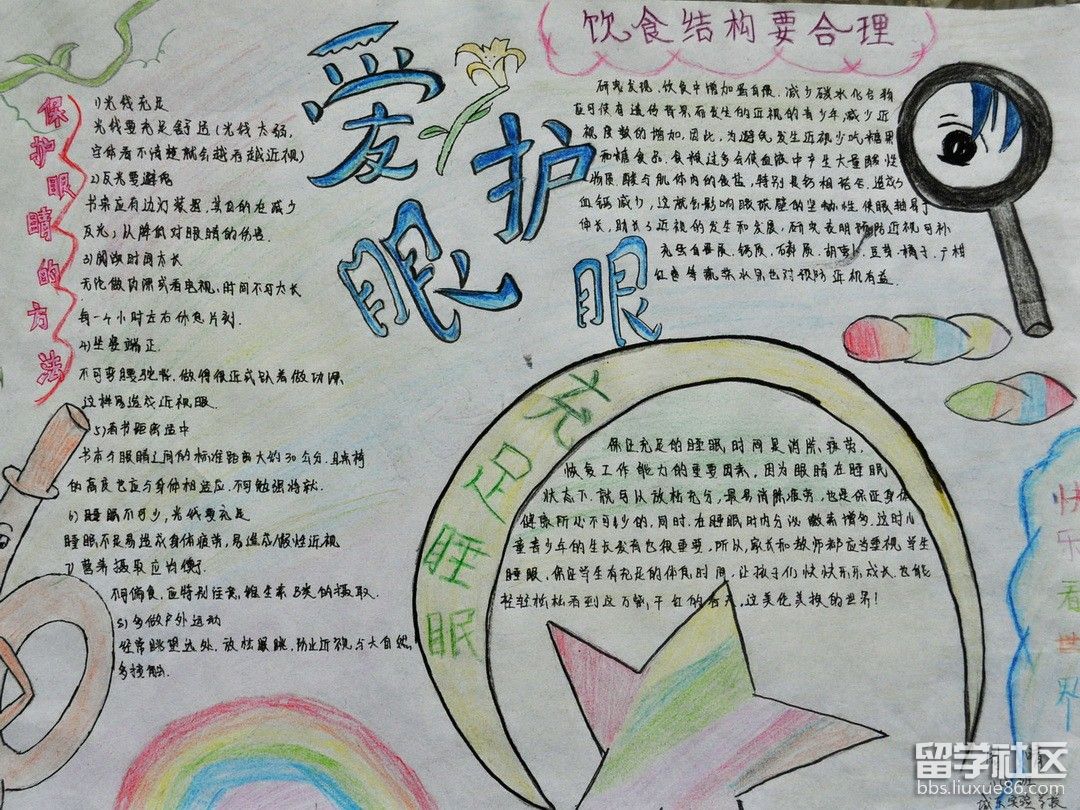 爱护眼
眼
保护眼睛的方法
1)光线充足
光线要充足舒适(光线太弱,
字体看不清楚就会越看越近视)
2)反光要避免
书桌应有边灯装置,其目的在减少
反光,以降低对眼睛的伤害.
3)阅读时间太长
无论做功课或看电视,时间不可太长
每一个小时左右休息片刻.
4)坐姿端正.
不可弯腰驼背.做得很近或趴着做功课
这样易造成近视眼.
5)看书距离适中
书本与眼睛之间的标准距离大约30公分,且桌椅
的高度也应与身体相适应.不可勉强将就.
6)睡眠不可少,光线要充足
睡眠不足易造成身体疲劳,易造成假性近视
7)营养摄取应均衡.
不可偏食,应特别注意,维生素B类的摄取.
8)多做户外运动
经常眺望远处,放松眼睛,防止近视与大自然
多接触.
饮食结构要合理
研究发现,饮食中增加蛋白质、减少碳水化合物
可使有遗传背景而发生的近视的青少年减少近
视度数的增加.因此,为避免发生近视少吃糖果
和糖食品.食糖过多会使血液中产生大量酸性
物质.酸与肌体内的食盐,特别是钙相结合.造成了
血钙减少,这就会影响眼球壁的坚韧性.使眼轴易于
伸长,助长了近视的发生和发展.研究表明预防近视可补
充些蛋白质、钙质、磷质.胡萝卜、豆芽、橘子、广柑
红色等蔬菜水果也对预防近视有益.
充足睡眠
保证充足的睡眠时间是消除疲劳,
恢复工作能力的重要因素,因为眼睛在睡眠
状态下.就可从放松充分,最易消除疲劳,也是保证身体
健康所必不可少的,同时,在睡眠时内分泌激素增多,这时儿
童青少年的生长发育也很重要,所以,家长和教师都应当重视学生
睡眠,保证学生有充足的休息时间,让孩子们快快乐乐成长.也能
轻轻松松看到这万紫千红的春天,这美伦美换的世界!
快乐看世界
留学社区
bbs.liuxue86.com